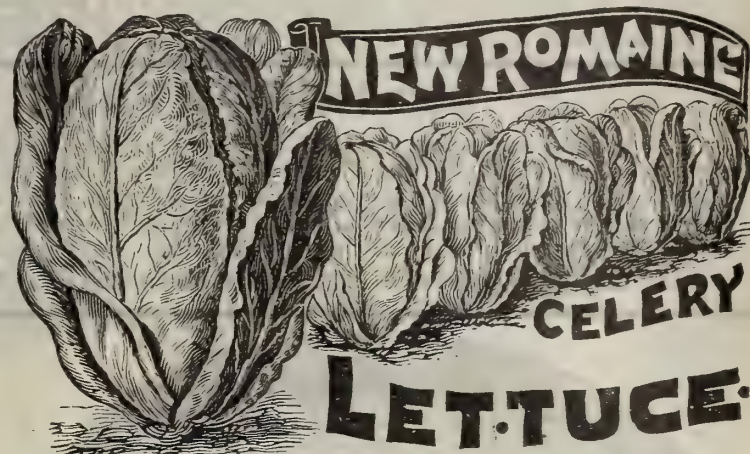 NEW ROMAINE
CELERY
LET·TUCE·